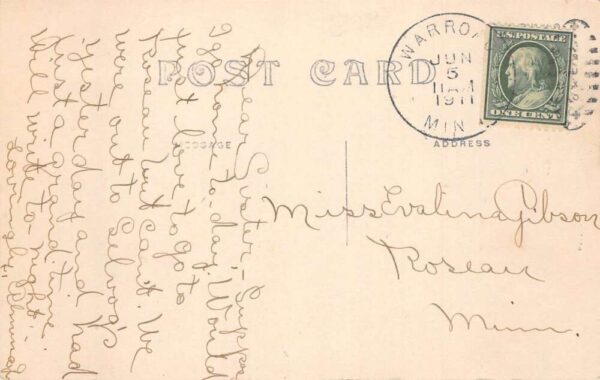 POST CARD
MESSAGE
ADDRESS
WARROAD
JUN
5
11 AM
1911
MINN
U.S. POSTAGE
ONE CENT
Dear Sister – Suppose
I go home to-day. Would
just love to go to
Roseau but can't. We
were out to Selvog's
yesterday and had
just a grand time.
Will write to-night.
Lovingly,
Miss Evalina Gibson
Roseau
Minn.